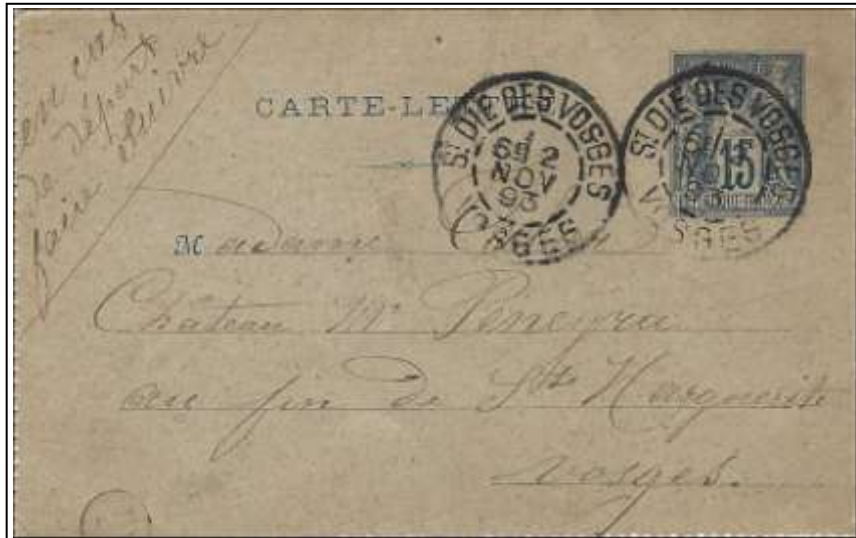 en cas
de départ
faire suivre
CARTE-LETTRE
ST DIE DES VOSGES
6E 2
NOV
93
VOSGES
ST DIE DES VOSGES
6E
NOV
93
VOSGES
15
Madame
Château Mr Peneyru
au fin de Ste Marguerite
Vosges.